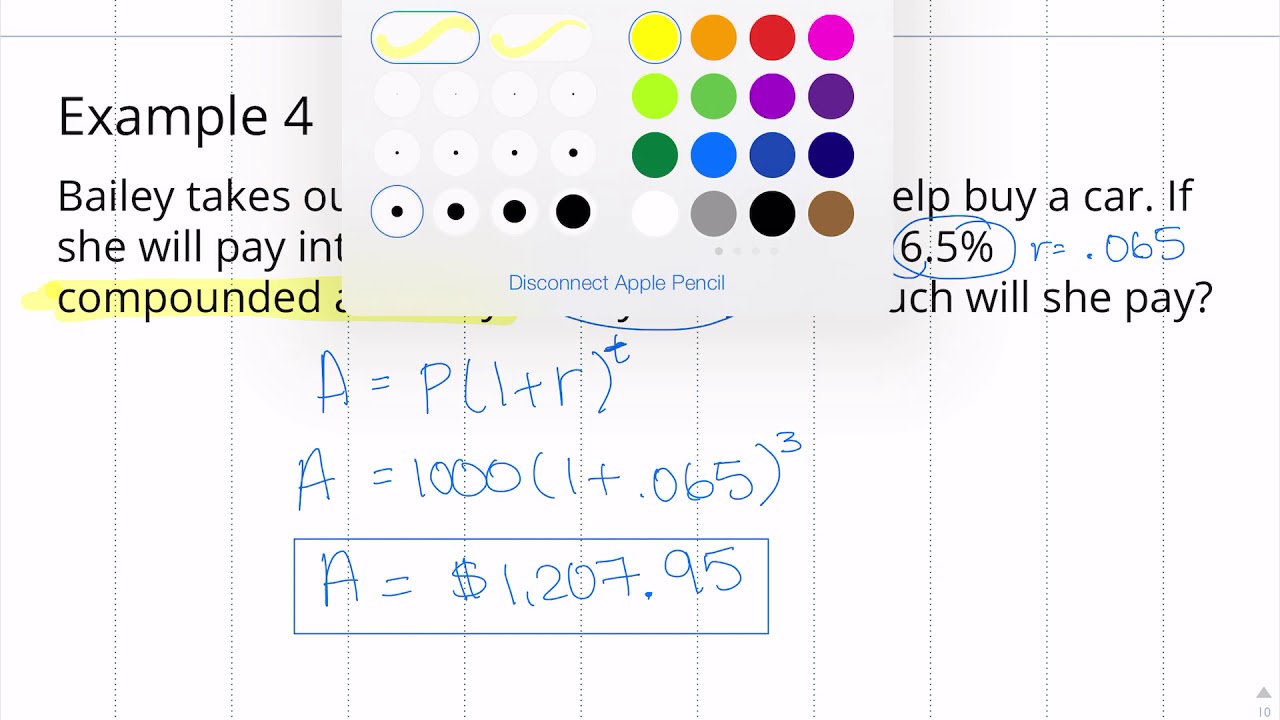 Example 4
Bailey takes ou elp buy a car. If
she will pay int 6.5% r = .065
compounded a uch will she pay?
Disconnect Apple Pencil
A = P(1+r)^t
A = 1000(1+.065)^3
A = $1,207.95
10